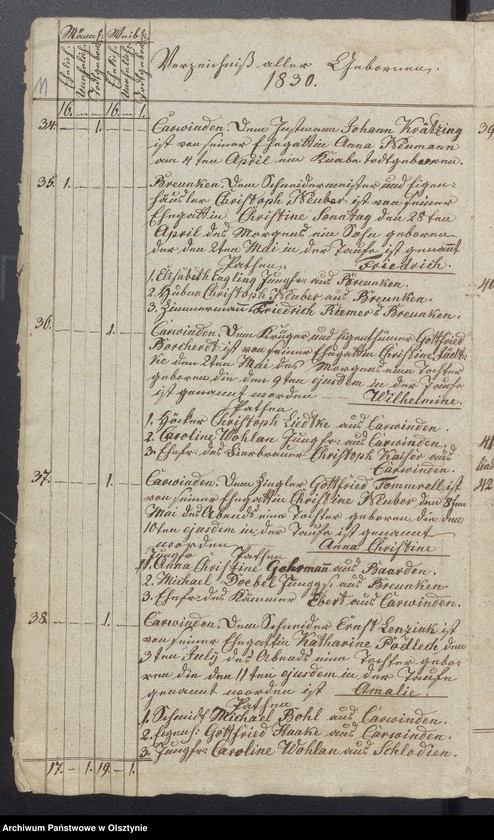 Männl: Weibl:
Ehelich Unehelich Todtgeboren Ehelich Unehelich Todtgeboren
Verzeichniß aller Gebornen.
1830.
16. — — 16 — 1.
34. — — 1. — — —
Carwinden. Dem Instmann Johann Krätzing
ist von seiner Ehegattin Anna Neumann
am 4ten April ein Knabe todtgeboren.
35. 1. — — — — —
Breunken. Dem Schneidermeister und Eigen-
häusler Christoph Neuber ist von seiner
Ehegattin Christine Sonntag den 28ten
April des Morgens ein Sohn geboren
der den 2ten Mai in der Taufe ist genannt
Pathen Friedrich.
1. Elisabeth Engling Jungfr: aus Breunken.
2. Christoph Neuber aus Breunken.
3. Zimmermann Friedrich Riemer Breunken.
36. — — — 1. — —
Carwinden. Dem Krüger und Eigenthümer Gottfried
Borcherdt ist von seiner Ehegattin Christine Lüdt-
ke den 2ten Mai des Morgens eine Tochter
geboren die den 9ten ejusdem in der Taufe
ist genannt worden Wilhelmine.
Pathen
1. Höcker Christoph Liedtke aus Carwinden.
2. Caroline Wohlan Jungfr: aus Carwinden.
3. Ehefr: des Bierbrauer Christoph Kaiser aus
Carwinden.
37. — — — 1. — —
Carwinden. Dem Ziegler Gottfried Tommrell ist
von seiner Ehegattin Christine Neuber den 8ten
Mai des Abends eine Tochter geboren die den
10ten ejusdem in der Taufe ist genannt
worden Anna Christine
Jungfr Pathen
1. Anna Christine Gehrmann aus Baarden.
2. Michael Doebel Junggs: aus Breunken.
3. Ehefr: des Kämmer Ebert aus Carwinden.
38. — — — 1. — —
Carwinden. Dem Schneider Ernst Lenzink ist
von seiner Ehegattin Katharine Pödlech den
3ten July des Abends eine Tochter gebo-
ren die den 11ten ejusdem in der Taufe
genannt worden ist Amalie.
Pathen
1. Schmidt Michael Bohl aus Carwinden.
2. Eigenk: Gottfried Haake aus Carwinden.
3. Jungfr: Caroline Wohlan aus Schlodien.
17. — 1. 19. — 1.
39
40
41
42
Archiwum Państwowe w Olsztynie